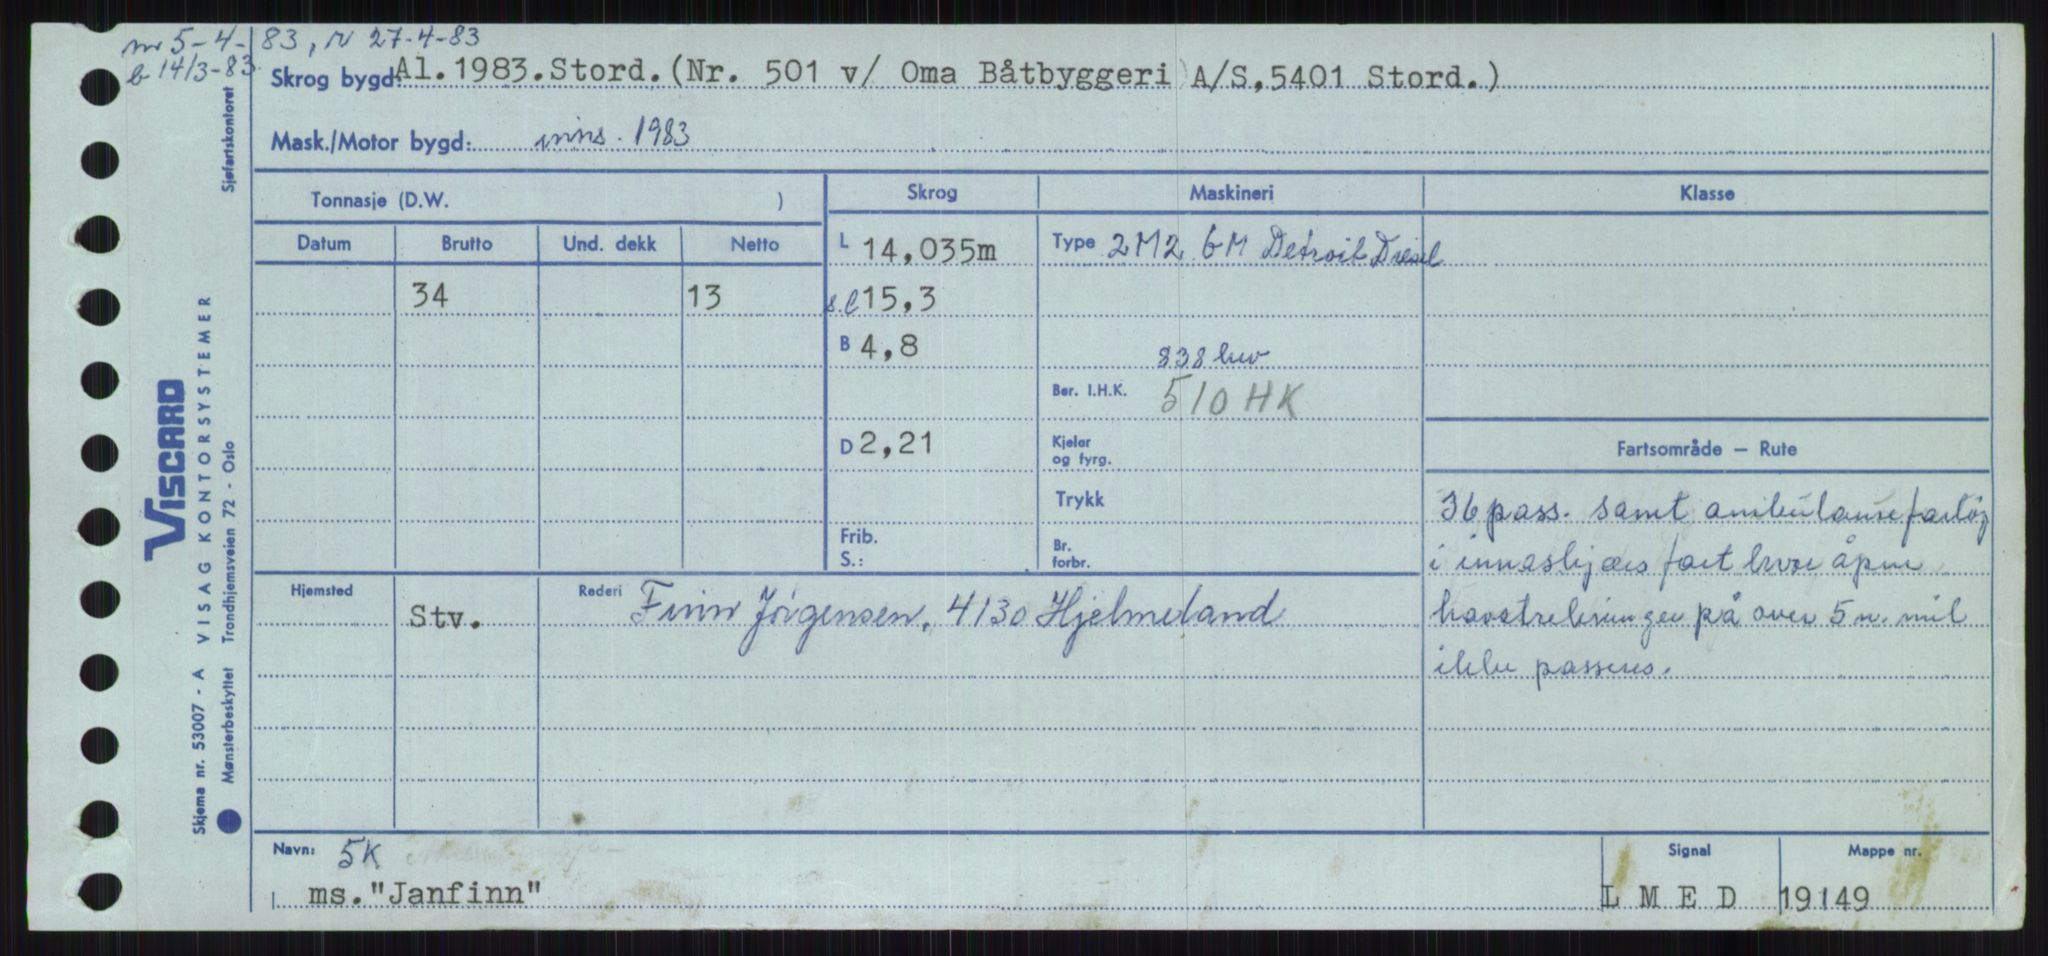 m 5-4-83, N 27-4-83
b 14/3-83
Skrog bygd: Al.1983.Stord.(Nr. 501 v/ Oma Båtbyggeri A/S,5401 Stord.)
Mask./Motor bygd: inns. 1983
Tonnasje (D.W. ) Skrog Maskineri Klasse
Datum Brutto Und. dekk Netto L 14,035m Type 2M2 GM Detroit Diesel
34 13 s.l 15,3
B 4,8 838 kw
Ber. I.H.K. 510 HK
D 2,21 Kjeler og fyrg. Fartsområde — Rute
Trykk 36 pass. samt ambulansefartøj
Frib. S.: Br. forbr. i innaskjærs fart hvor åpne
Hjemsted Stv. Rederi Finn Jørgensen, 4130 Hjelmeland havstrekninger på over 5 n. mil
ikke passeres.
Navn: 5K Signal Mappe nr.
ms."Janfinn" L M E D 19149
Sjøfartskontoret
VISCARD
VISAG KONTORSYSTEMER
Trondhjemsveien 72 - Oslo
Skjema nr. 53007 - A
Mønsterbeskyttet